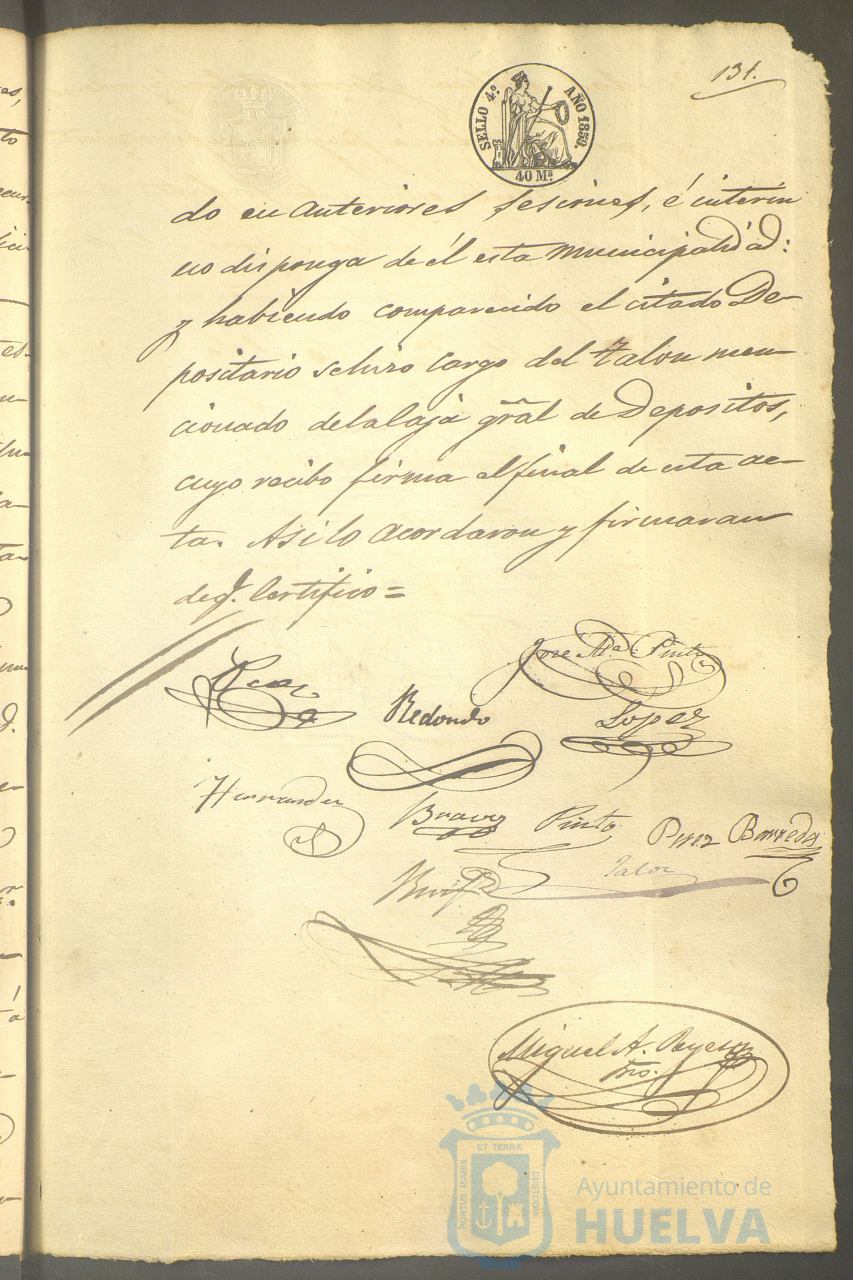 131.
SELLO 4º AÑO 1859.
40 Ms
do en anteriores sesiones, é interin
no disponga de él esta Municipalidad:
y habiendo comparecido el citado De-
positario se hizo cargo del Talon men-
cionado de la Caja gral de Depositos,
cuyo recibo firma al final de esta ac-
ta. Asi lo acordaron y firmaran
de q. Certifico=
Jose Ma. Pinto
Redondo
Lopez
Hernandez
Bravo Pinto Perez Barreda
Miguel A. Reyes
Srio.
ET TERRÆ
PORTUS MARIS
CUSTODIA
Ayuntamiento de
HUELVA